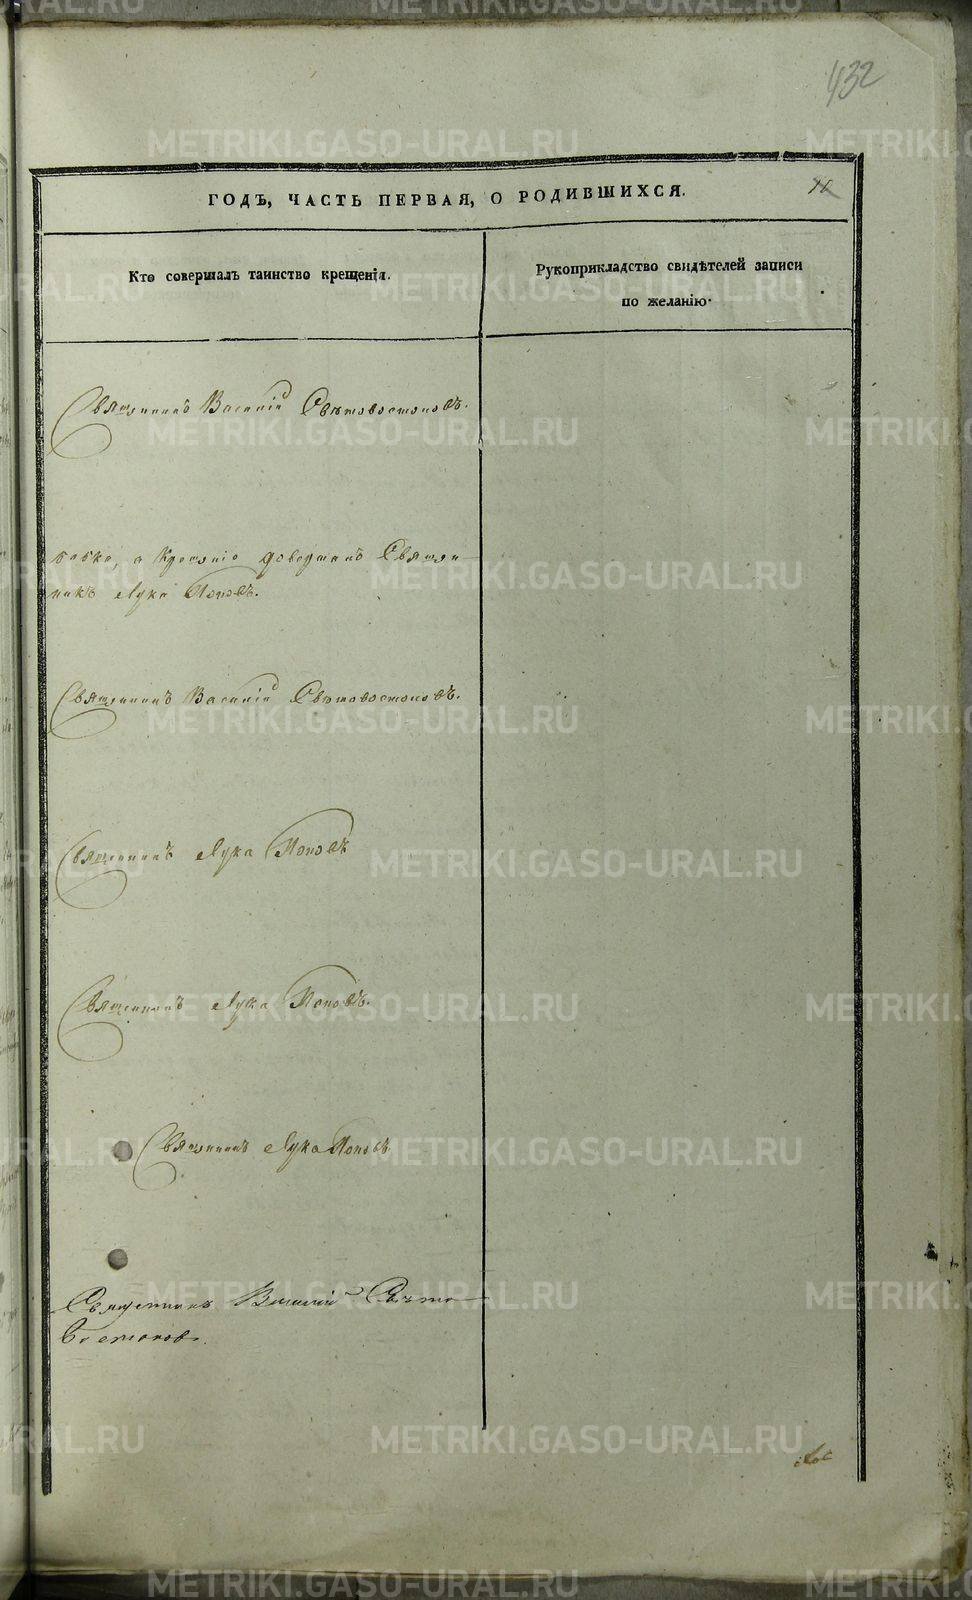 432
10
ГОДЪ, ЧАСТЬ ПЕРВАЯ, О РОДИВШИХСЯ.
Кто совершалъ таинство крещенія.
Рукоприкладство свидѣтелей записи
по желанію.
Священникъ Василій Свѣтовостоковъ.
бабка, а Крещеніе Священ
никъ Лука Поповъ.
Священникъ Василій Свѣтовостоковъ.
Священникъ Лука Поповъ
Священникъ Лука Поповъ.
Священникъ Лука Поповъ
Священникъ Василій Свѣто
Востоковъ.
METRIKI.GASO-URAL.RU